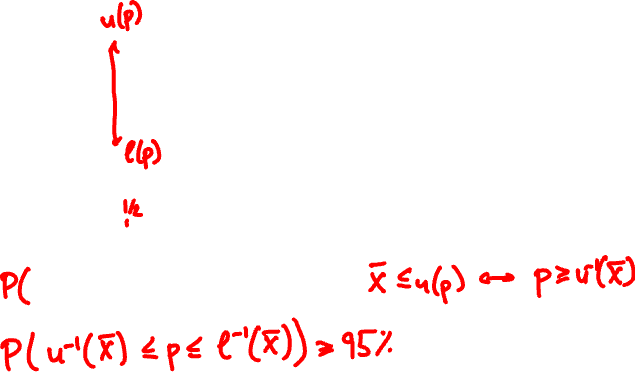 u(p)
l(p)
1/2
P(
x̄ ≤ u(p) ↔ p ≥ u⁻¹(x̄)
P( u⁻¹(x̄) ≤ p ≤ l⁻¹(x̄)) ≥ 95%